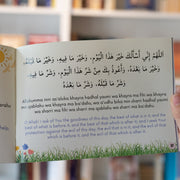 اللَّهُمَّ إِنِّي أَسْأَلُكَ خَيْرَ هَذَا الْيَوْمِ، وَخَيْرَ مَا فِيهِ، وَخَيْرَ مَا قَبْلَهُ،
وَخَيْرَ مَا بَعْدَهُ، وَأَعُوذُ بِكَ مِنْ شَرِّ هَذَا الْيَوْمِ، وَشَرِّ مَا فِيهِ،
وَشَرِّ مَا قَبْلَهُ، وَشَرِّ مَا بَعْدَهُ
khayra hadhal yawmi wa khayra ma fihi wa khayra ma
qablahu wa khayra ma ba'dahu, wa a'udhu bika min sharri hadhal
yawmi wa sharri ma fihi wa sharri ma qablahu wa sharri ma ba'dahu
O Allah! I ask of You the goodness of this day, the best of what is in it, and the
best of what is before it, and the best of what is after it, and I seek Your
protection against the evil of this day, the evil that is in it, and the evil of that
which is before it, and the evil of that which is after it.